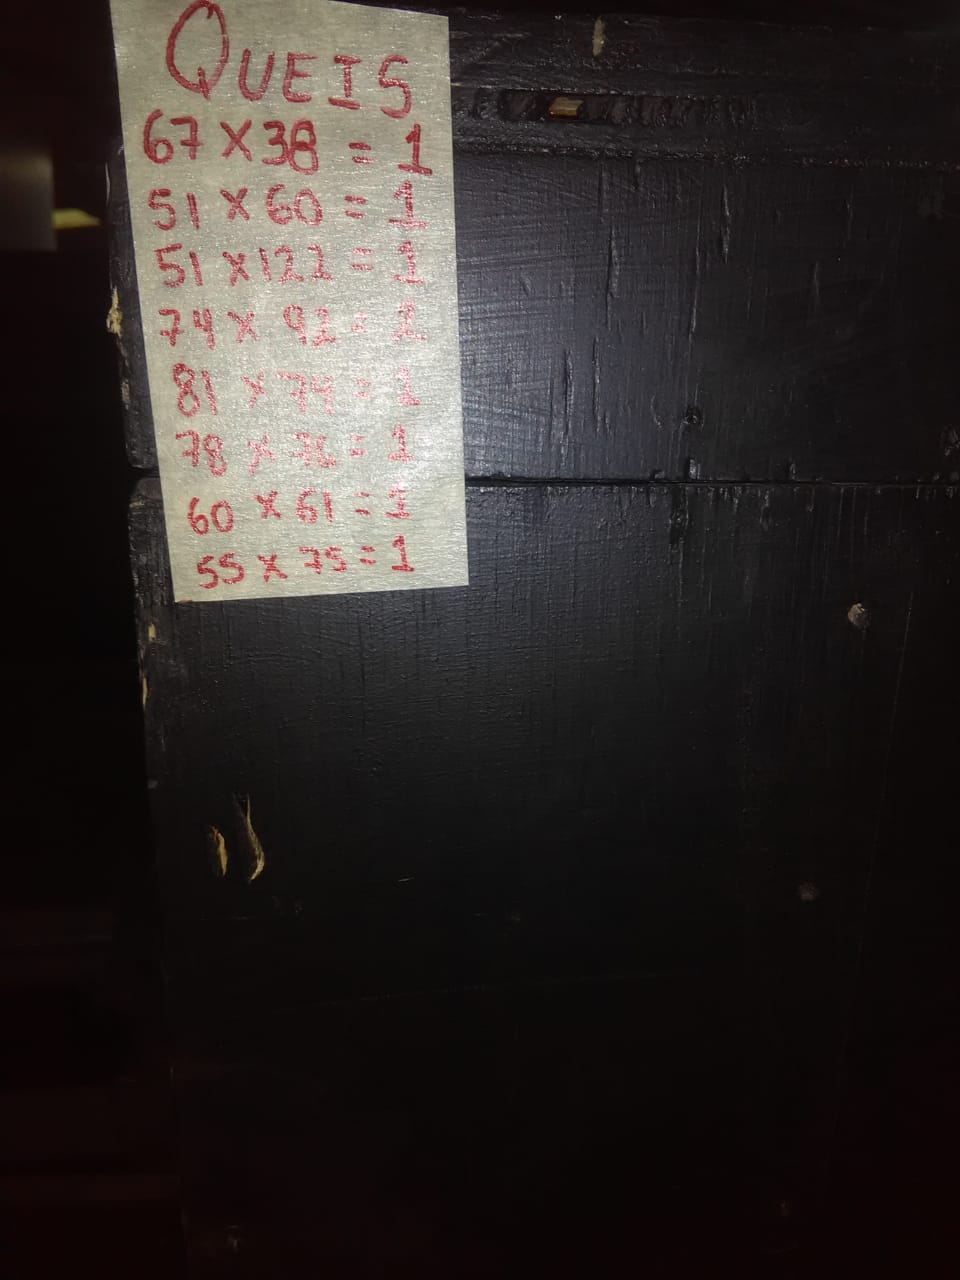 QUEIS
67 X 38 = 1
51 X 60 = 1
51 X 122 = 1
74 X 92 = 2
81 X 74 = 1
78 X 76 = 1
60 X 61 = 1
55 X 75 = 1